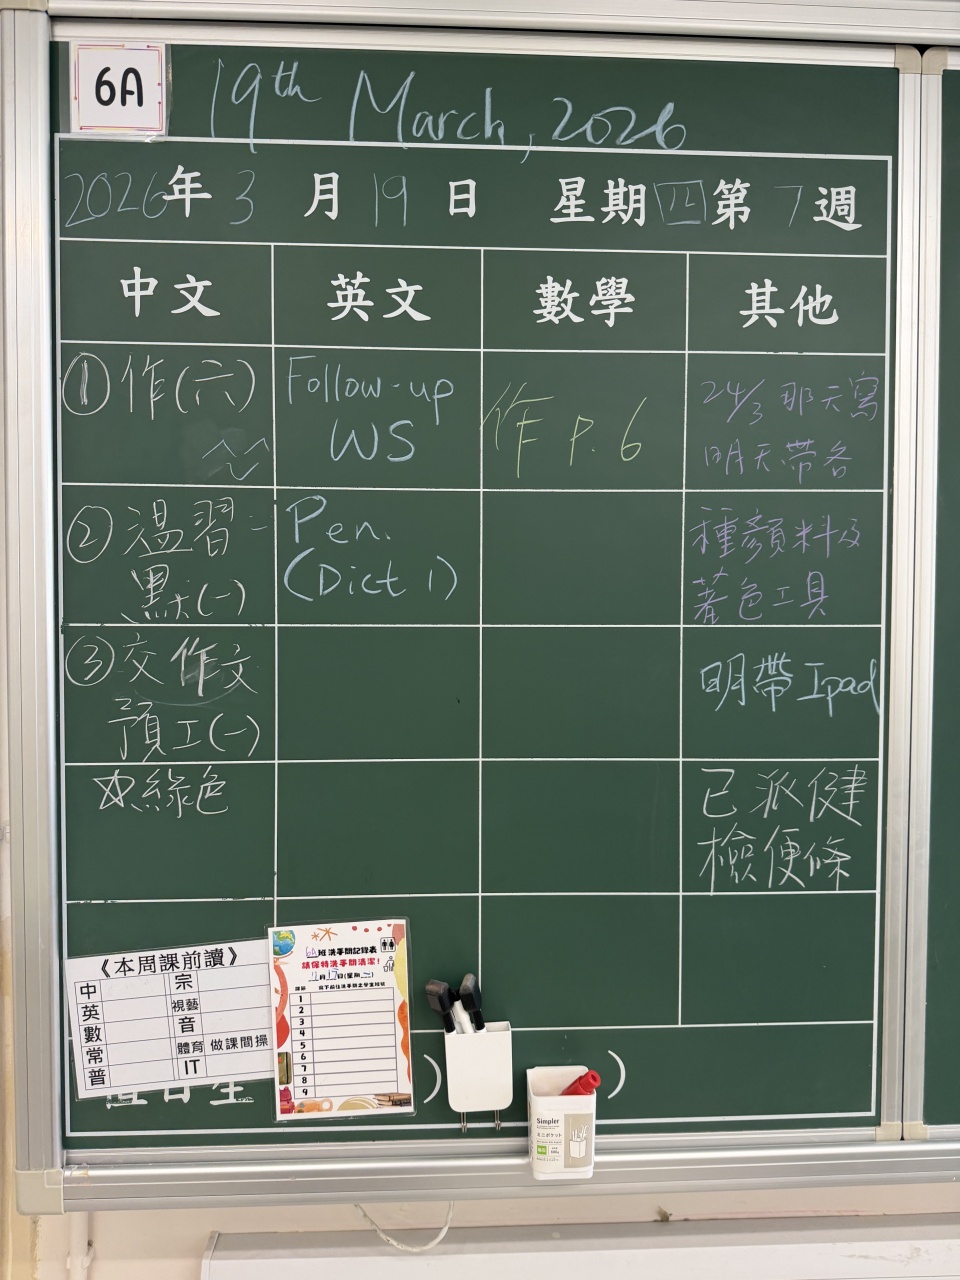 6A
19th March, 2026
2026年3月19日 星期四第7週
中文 英文 數學 其他
①作(六)
②溫習=
默(一)
③交作文
預工(一)
綠色
Follow-up
WS
Pen.
(Dict 1)
作 P. 6
24/3 那天寫
明天帶各
種顏料及
著色工具
明帶Ipad
已派健
檢便條
《本周課前讀》
中 宗
英 視藝
數 音
常 體育 做課間操
普 IT
6A班洗手間記錄表
請保持洗手間清潔!
課節
1
2
3
4
5
6
7
8
9
Simpler
ミニポケット